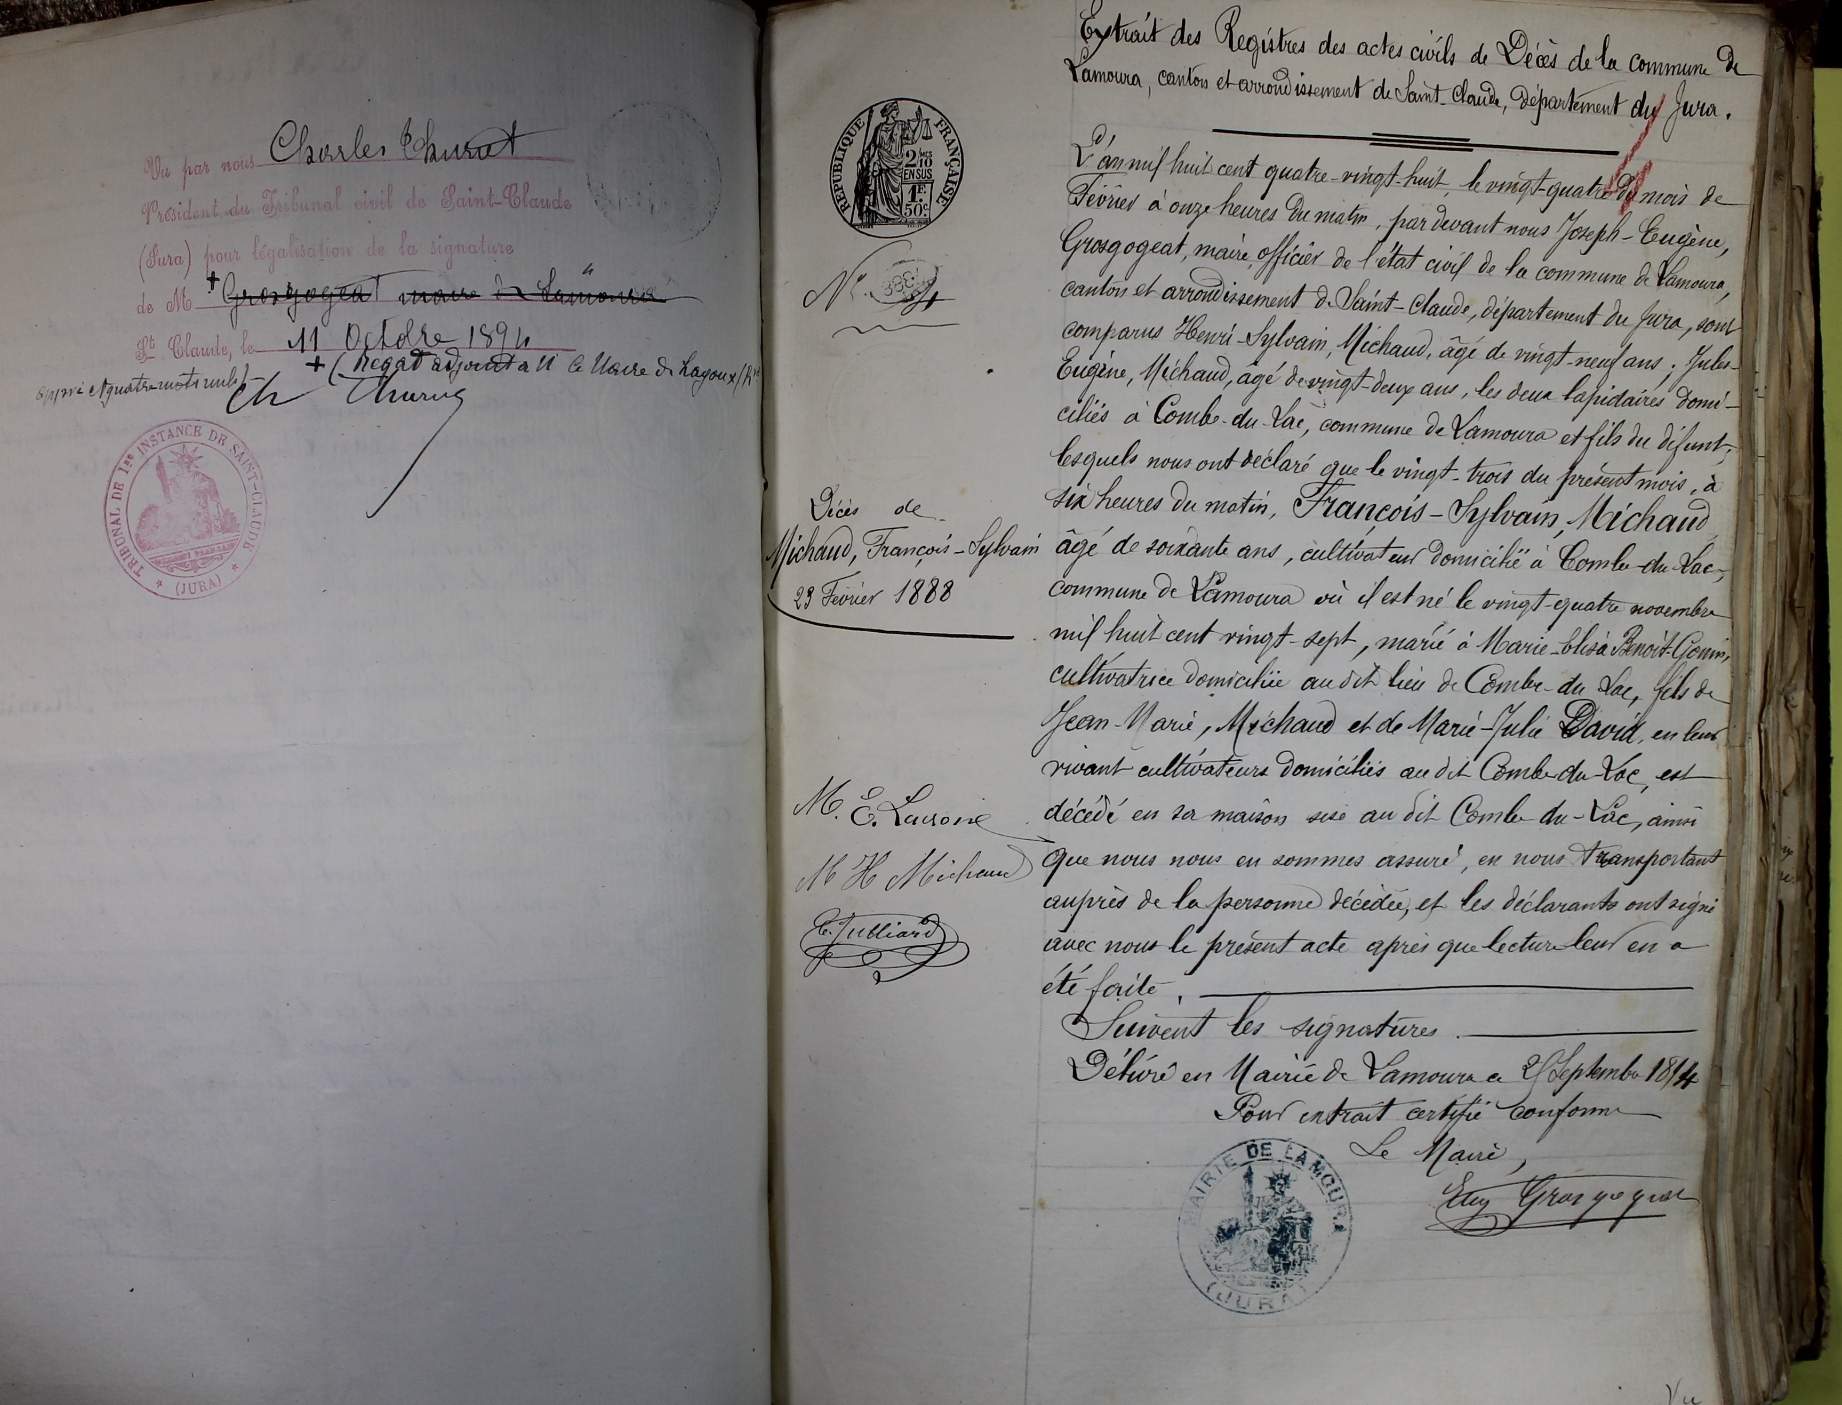 Vu par nous Charles Thurut
Président du Tribunal civil de Saint-Claude
(Jura) pour légalisation de la signature
de M + Grosgogeat maire de Lamoura
St Claude, le 11 Octobre 1894
+ ( Regad adjoint à M le Maire de
quatre mots nuls
Ch
TRIBUNAL DE 1ere INSTANCE DE SAINT-CLAUDE
(JURA)
RÉPUBLIQUE FRANÇAISE
2 10 MES
EN SUS
1F.
50c.
No 4
Décès de
Michaud, François-Sylvain
23 Février 1888
M. E. Lacroix
M H Michaud
E. Julliard
Extrait des Registres des actes civils de Décès de la commune de
Lamoura, canton et arrondissement de Saint-Claude, département du Jura.
L'an mil huit cent quatre-vingt-huit le vingt-quatre du mois de
Février à onze heures du matin, par devant nous Joseph-Eugène,
Grosgogeat, maire, officier de l'état civil de la commune de Lamoura,
canton et arrondissement de Saint-Claude, département du Jura, sont
comparus Henri-Sylvain, Michaud, âgé de vingt-neuf ans; Jules-
Eugène, Michaud, âgé de vingt-deux ans, les deux lapidaires domi-
ciliés à Combe-du-Lac, commune de Lamoura et fils du défunt;
lesquels nous ont déclaré que le vingt-trois du présent mois, à
six heures du matin, François-Sylvain, Michaud
âgé de soixante ans, cultivateur domicilié à Combe-du-Lac,
commune de Lamoura où il est né le vingt-quatre novembre
mil huit cent vingt-sept, marié à Marie-Elisa Benoit-Gonin,
cultivatrice domiciliée au dit lieu de Combe-du Lac, fils de
Jean-Marie, Michaud et de Marie-Julie David, en leur
vivant cultivateurs domiciliés au dit Combe-du-Lac, est
décédé en sa maison sise au dit Combe-du-Lac, ainsi
que nous nous en sommes assuré, en nous transportant
auprès de la personne décédée, et les déclarants ont signé
avec nous le présent acte après que lecture leur en a
été faite.
Suivent les signatures.
Délivré en Mairie de Lamoura ce Septembre 1894
Pour extrait certifié conforme
Le Maire,
Eug Grosgogeat
MAIRIE DE LAMOURA
(JURA)
Vu